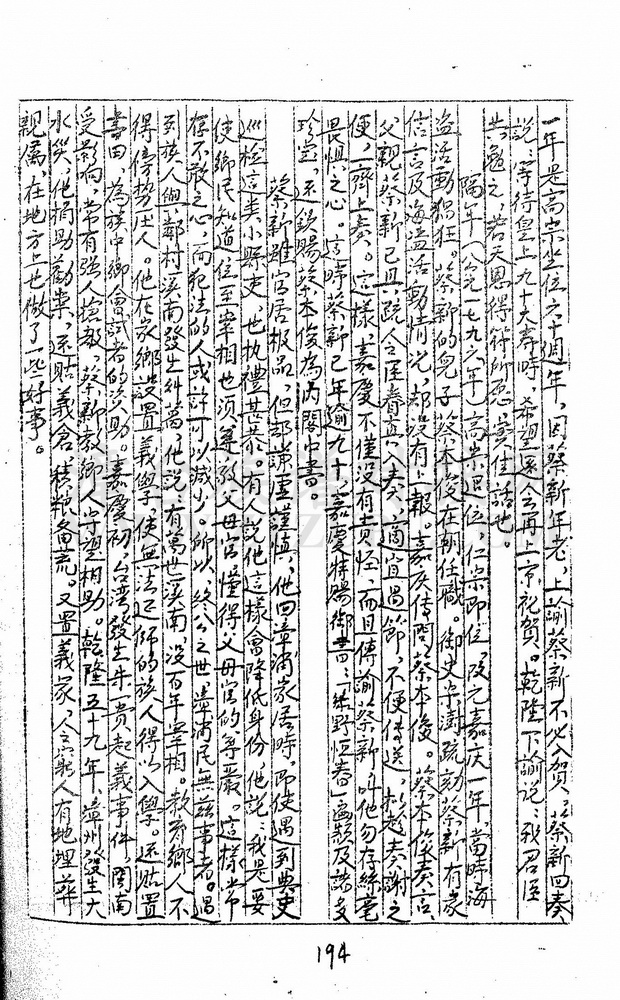 一年是高宗坐位六十週年，因蔡新年老，上諭蔡新不必入賀，蔡新回奏
說：等待皇上九十大壽時，希望還会再上京祝賀。乾隆下諭說：我君臣
共勉之，若天恩得符所愿，實佳話也。
隔年（公元一七九六年）高宗退位，仁宗即位，改元嘉庆一年，當時海
盗活動猖狂。蔡新的兒子蔡本俊在朝任職。御史宋澍疏劾蔡新有家
信言及海盗活動情况，却没有上報。嘉庆傳問蔡本俊。蔡本俊奏言
父親蔡新已具疏令臣賫京入奏，適宜過節，不便傳送，拟趁奏謝之
便，一齊上奏。這樣，嘉慶不僅没有責怪，而且傳諭蔡新叫他勿存絲毫
畏惧之心。這時蔡新已年逾九十，嘉慶特賜御書：綠野恆春一匾額及諸多
珍宝，还欽賜蔡本俊為内閣中書。
蔡新雖官居极品，但却谦虚謹慎，他回漳浦家居時，即使遇到典史
巡檢這类小縣吏，也执禮甚恭。有人說他這樣會降低身份，他說：我是要
使鄉民知道位至宰相也须尊敬父母官，懂得父母官的尊嚴。這樣常
存不敢之心，而犯法的人或許可以减少。所以，終公之世漳浦民無兹事者。遇
到族人與鄰村溪南發生纠葛，他說，有萬世溪南，没百年宰相。教育鄉人不
得倚势压人。他在家鄉設置義學，使無法延師的族人得以入學。还贴置
書田，為族中鄉會試者的资助。嘉慶初，台湾發生朱貴起義事件，閩南
受影响，常有强人搶敚，蔡新教鄉人守望相助。乾隆五十九年，漳州發生大
水災，他捐助勸粜，还贴義倉，積粮备荒。又置義冢，令窮人有地埋葬
親屬，在地方上也做了一些好事。
194